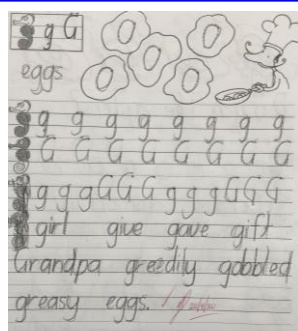 g G
eggs
g g g g g g g g
G G G G G G G G
g g g G G G g g g G G G
girl give gave gift
Grandpa greedily gobbled
greasy eggs.